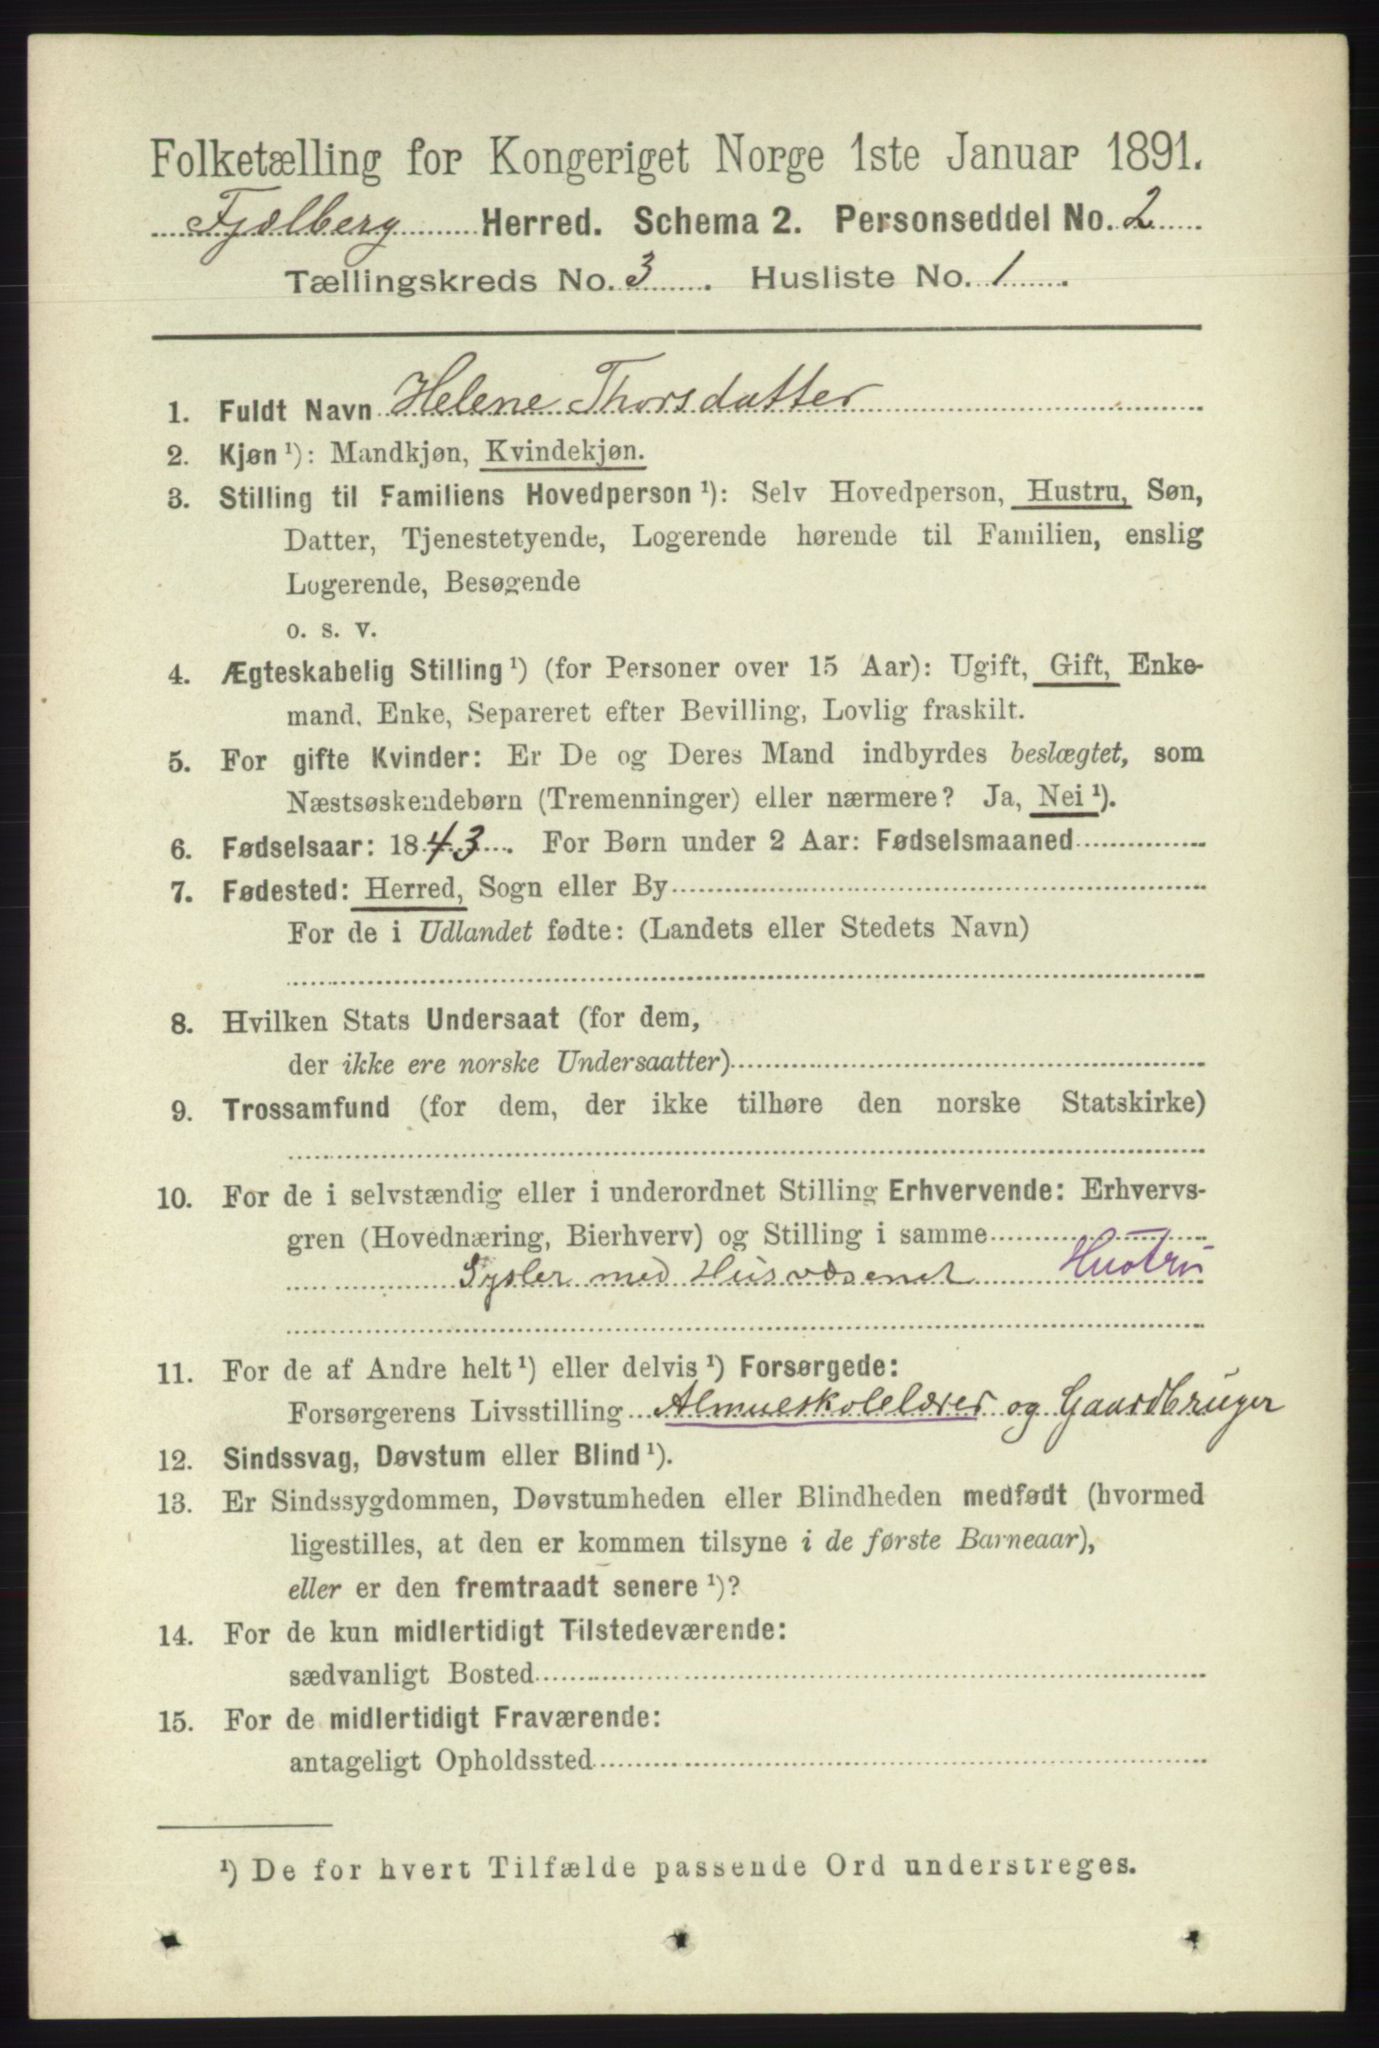 Folketælling for Kongeriget Norge 1ste Januar 1891.
Fjælberg Herred. Schema 2. Personseddel No. 2
Tællingskreds No. 3. Husliste No. 1.
1. Fuldt Navn Helene Thorsdatter
2. Kjøn ¹): Mandkjøn, Kvindekjøn.
3. Stilling til Familiens Hovedperson ¹): Selv Hovedperson, Hustru, Søn,
Datter, Tjenestetyende, Logerende hørende til Familien, enslig
Logerende, Besøgende
o. s. v.
4. Ægteskabelig Stilling ¹) (for Personer over 15 Aar): Ugift, Gift, Enke-
mand, Enke, Separeret efter Bevilling, Lovlig fraskilt.
5. For gifte Kvinder: Er De og Deres Mand indbyrdes beslægtet, som
Næstsøskendebørn (Tremenninger) eller nærmere? Ja, Nei ¹).
6. Fødselsaar: 1843. For Børn under 2 Aar: Fødselsmaaned
7. Fødested: Herred, Sogn eller By
For de i Udlandet fødte: (Landets eller Stedets Navn)
8. Hvilken Stats Undersaat (for dem,
der ikke ere norske Undersaatter)
9. Trossamfund (for dem, der ikke tilhøre den norske Statskirke)
10. For de i selvstændig eller i underordnet Stilling Erhvervende: Erhvervs-
gren (Hovednæring, Bierhverv) og Stilling i samme
Sysler med Husvæsenet Hustru
11. For de af Andre helt ¹) eller delvis ¹) Forsørgede:
Forsørgerens Livsstilling Almueskolelærer og Gaardbruger
12. Sindssvag, Døvstum eller Blind ¹).
13. Er Sindssygdommen, Døvstumheden eller Blindheden medfødt (hvormed
ligestilles, at den er kommen tilsyne i de første Barneaar),
eller er den fremtraadt senere ¹)?
14. For de kun midlertidigt Tilstedeværende:
sædvanligt Bosted
15. For de midlertidigt Fraværende:
antageligt Opholdssted
¹) De for hvert Tilfælde passende Ord understreges.